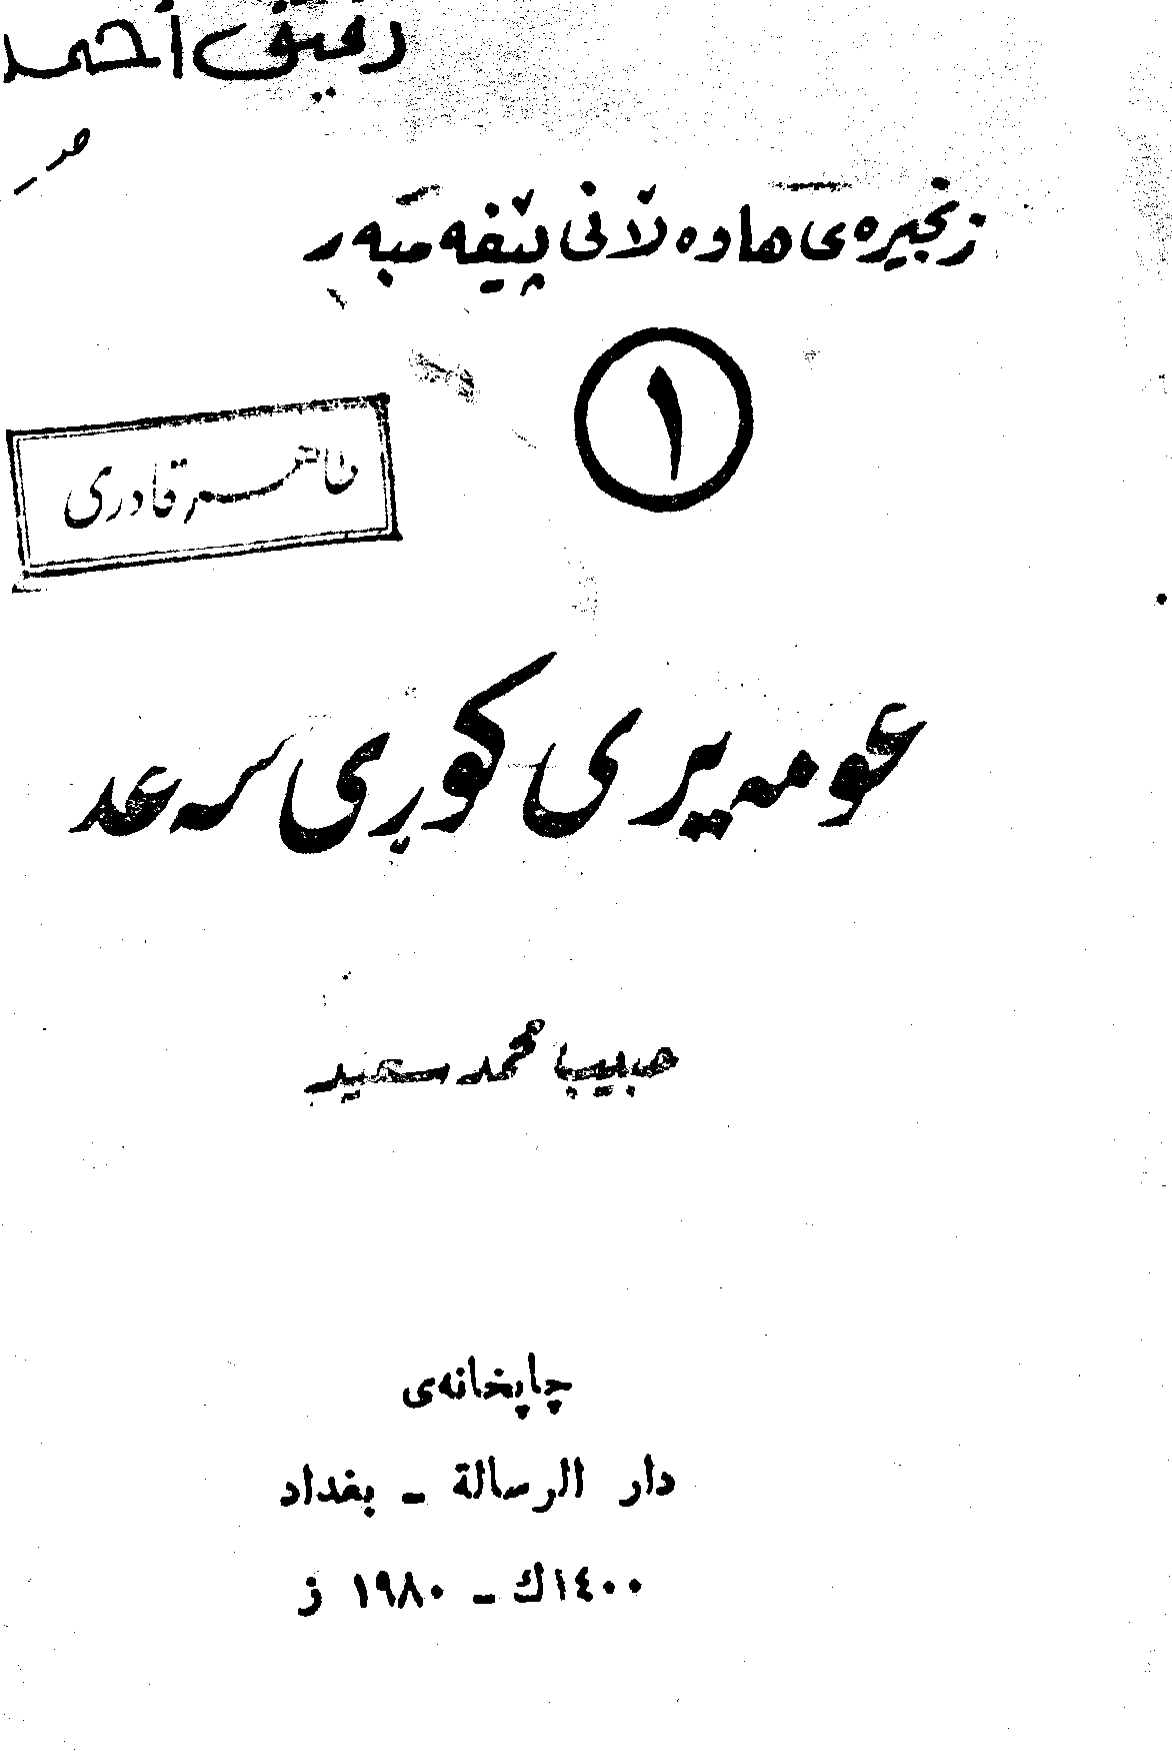 رفيق أحمد
زنجیرەی هاوەڵانی پێغەمبەر
١
طاهر قادری
عومەیری کوڕی سەعد
حبيب محمد سعيد
چاپخانەی
دار الرسالة ـ بغداد
١٤٠٠ك ـ ١٩٨٠ ز